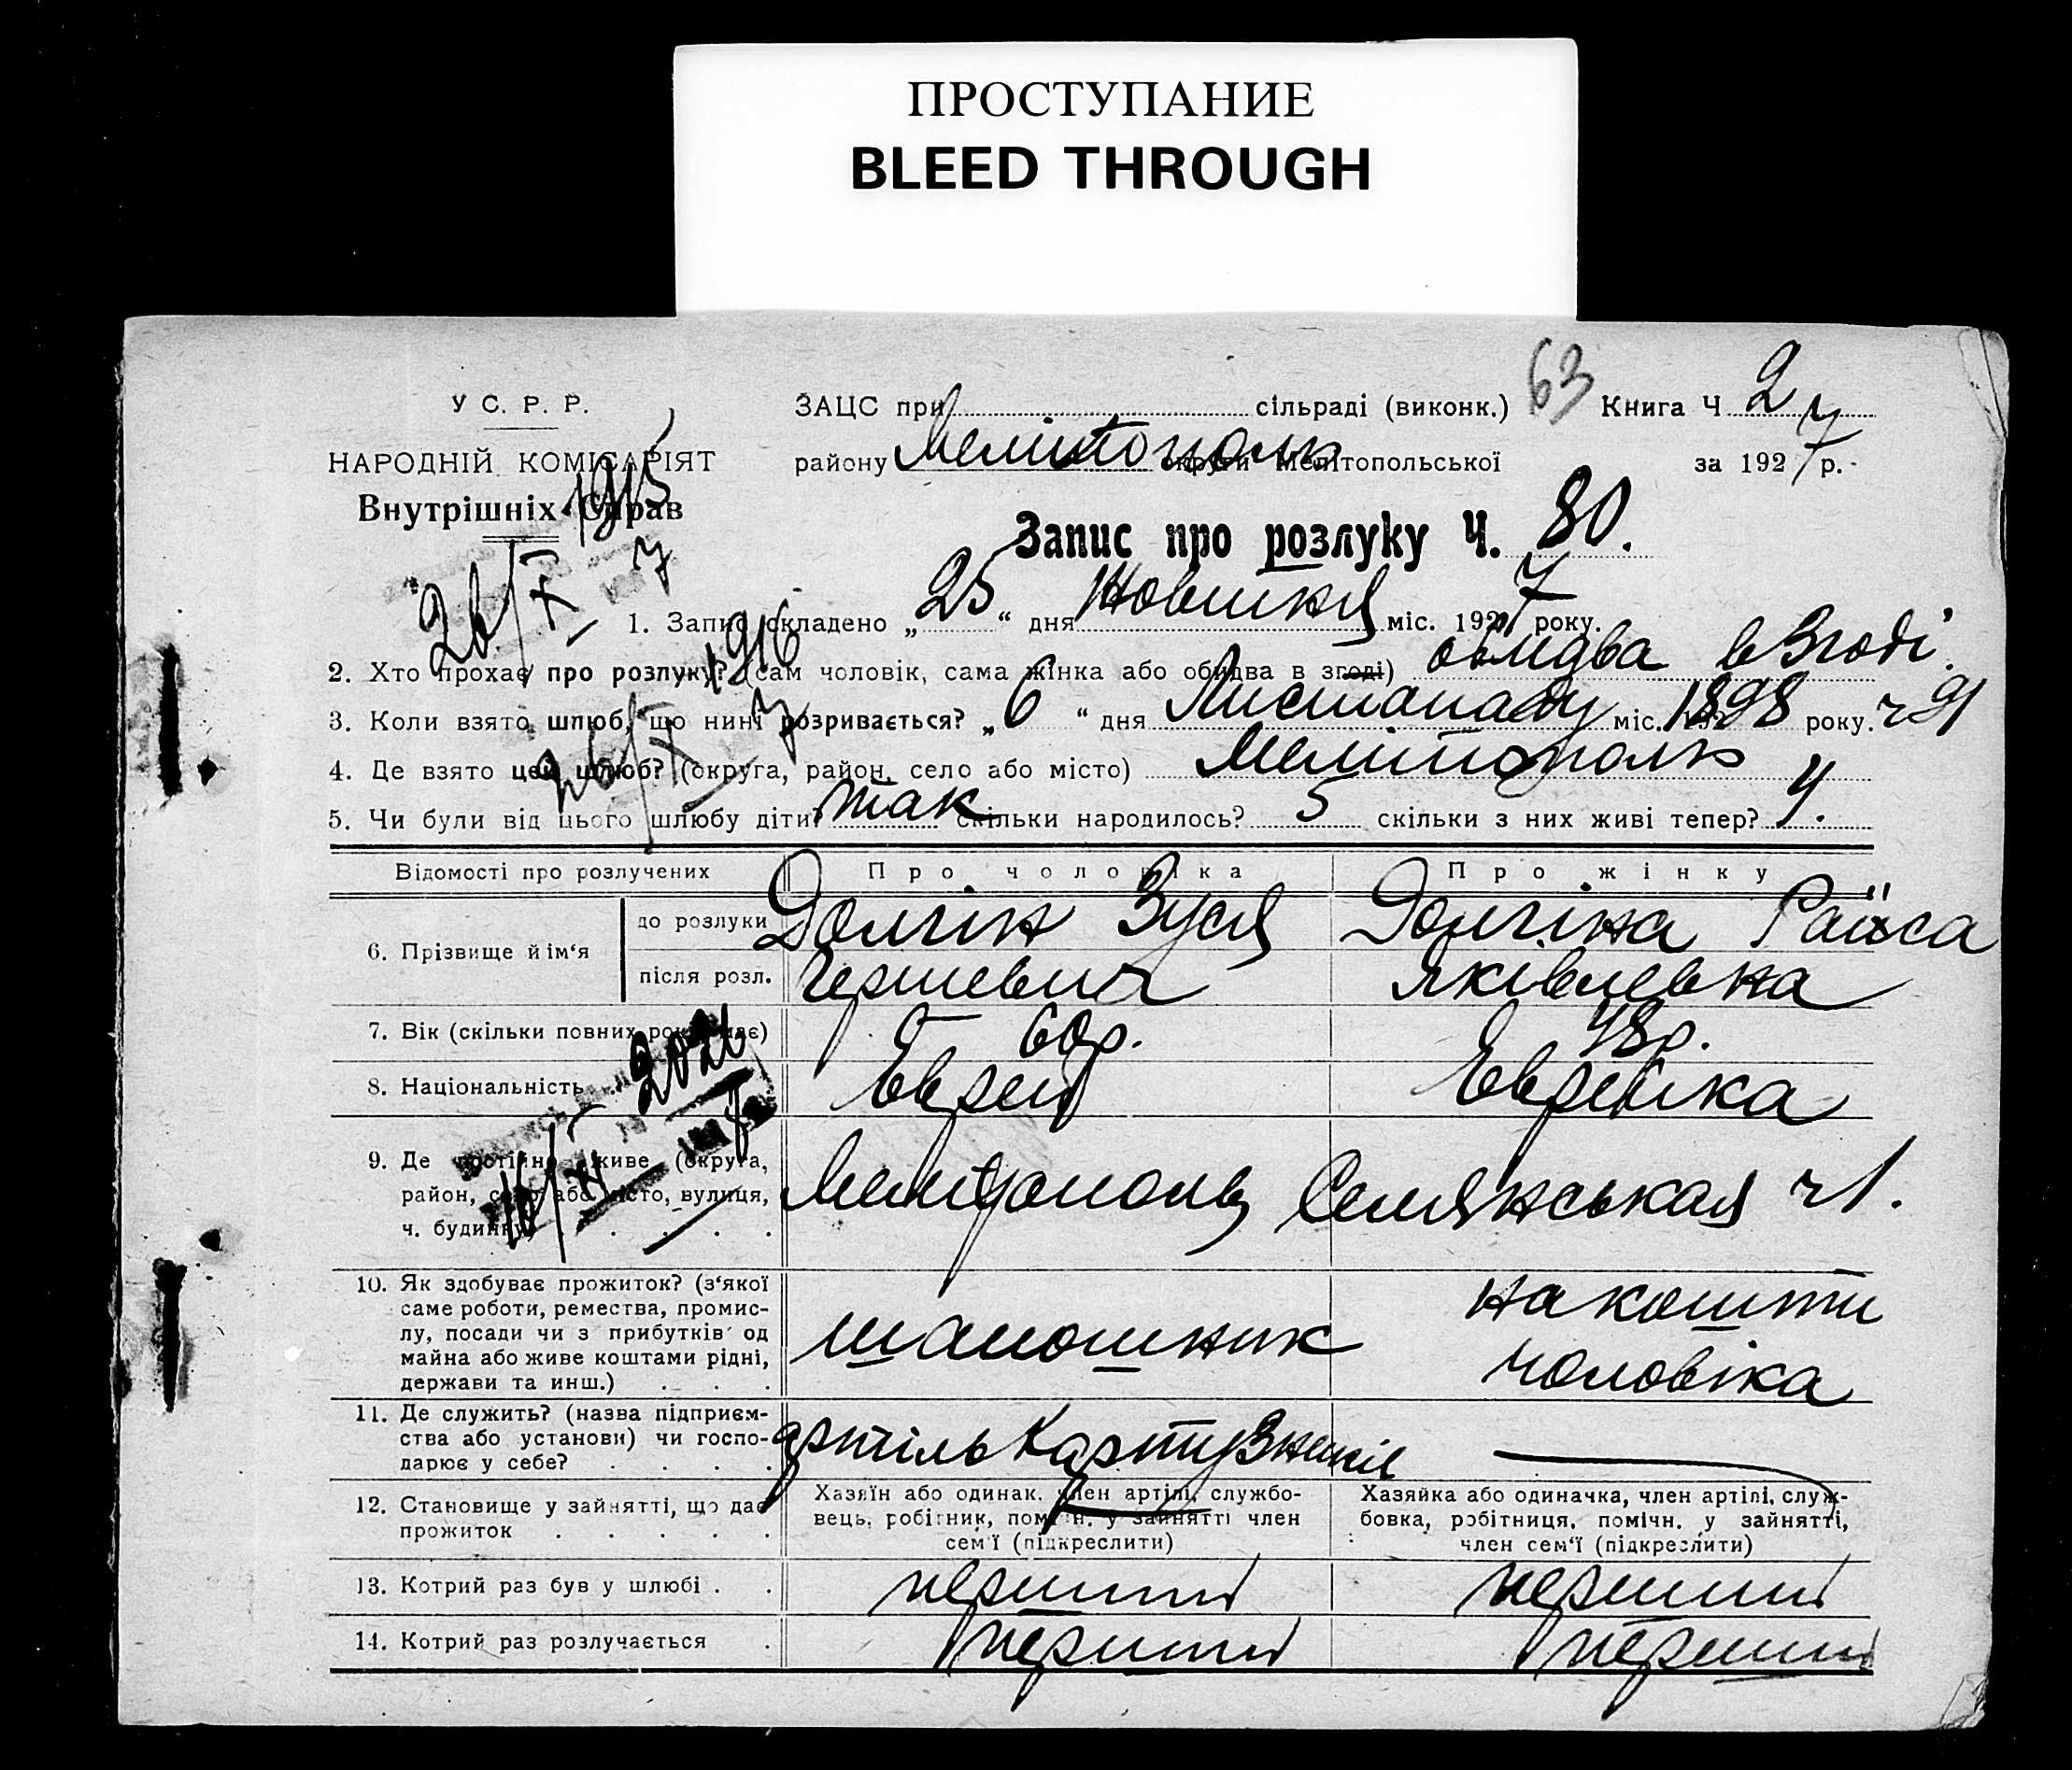 ПРОСТУПАНИЕ
BLEED THROUGH
63
У С. Р. Р.
ЗАЦС при сільраді (виконк.) Книга Ч 2
НАРОДНІЙ КОМІСАРІЯТ
району Мелітополь округи Мелітопольської за 1927 р.
Внутрішніх Справ
1915
Запис про розлуку Ч. 80.
26/X 7
1. Запис складено „ 25 “ дня Жовтня міс. 1927 року.
1916
2. Хто прохає про розлуку? (сам чоловік, сама жінка або обидва в згоді) обидва в згоді.
3. Коли взято шлюб, що нині розривається? „ 6 “ дня Листопаду міс. 1898 року. ч 91
26/X 7
4. Де взято цей шлюб? (округа, район, село або місто) Мелітополь
5. Чи були від цього шлюбу діти? так скільки народилось? 5 скільки з них живі тепер? 4.
Відомості про розлучених Про чоловіка Про жінку
6. Прізвище й ім‘я до розлуки Долгін Зуся Долгіна Раїса
після розл. Гершевич Яківлевна
7. Вік (скільки повних років має) 60р. 48р.
8. Національність Еврей Еврейка
9. Де постійно живе (округа,
район, село або місто, вулиця, Мелітополь Семянськая ч 1.
ч. будинку)
10. Як здобуває прожиток? (з‘якої
саме роботи, ремества, промис-
лу, посади чи з прибутків од
майна або живе коштами рідні,
держави та инш.) шапошник на кошти
чоловіка
11. Де служить? (назва підприєм-
ства або установи) чи госпо-
дарює у себе? артіль Картузників —
12. Становище у зайнятті, що дає
прожиток
Хазяїн або одинак, член артілі, службо-
вець, робітник, помічн. у зайнятті член
сем‘ї (підкреслити)
Хазяйка або одиначка, член артілі, служ-
бовка, робітниця, помічн. у зайнятті,
член сем‘ї (підкреслити)
13. Котрий раз був у шлюбі перший перший
14. Котрий раз розлучається перший перший